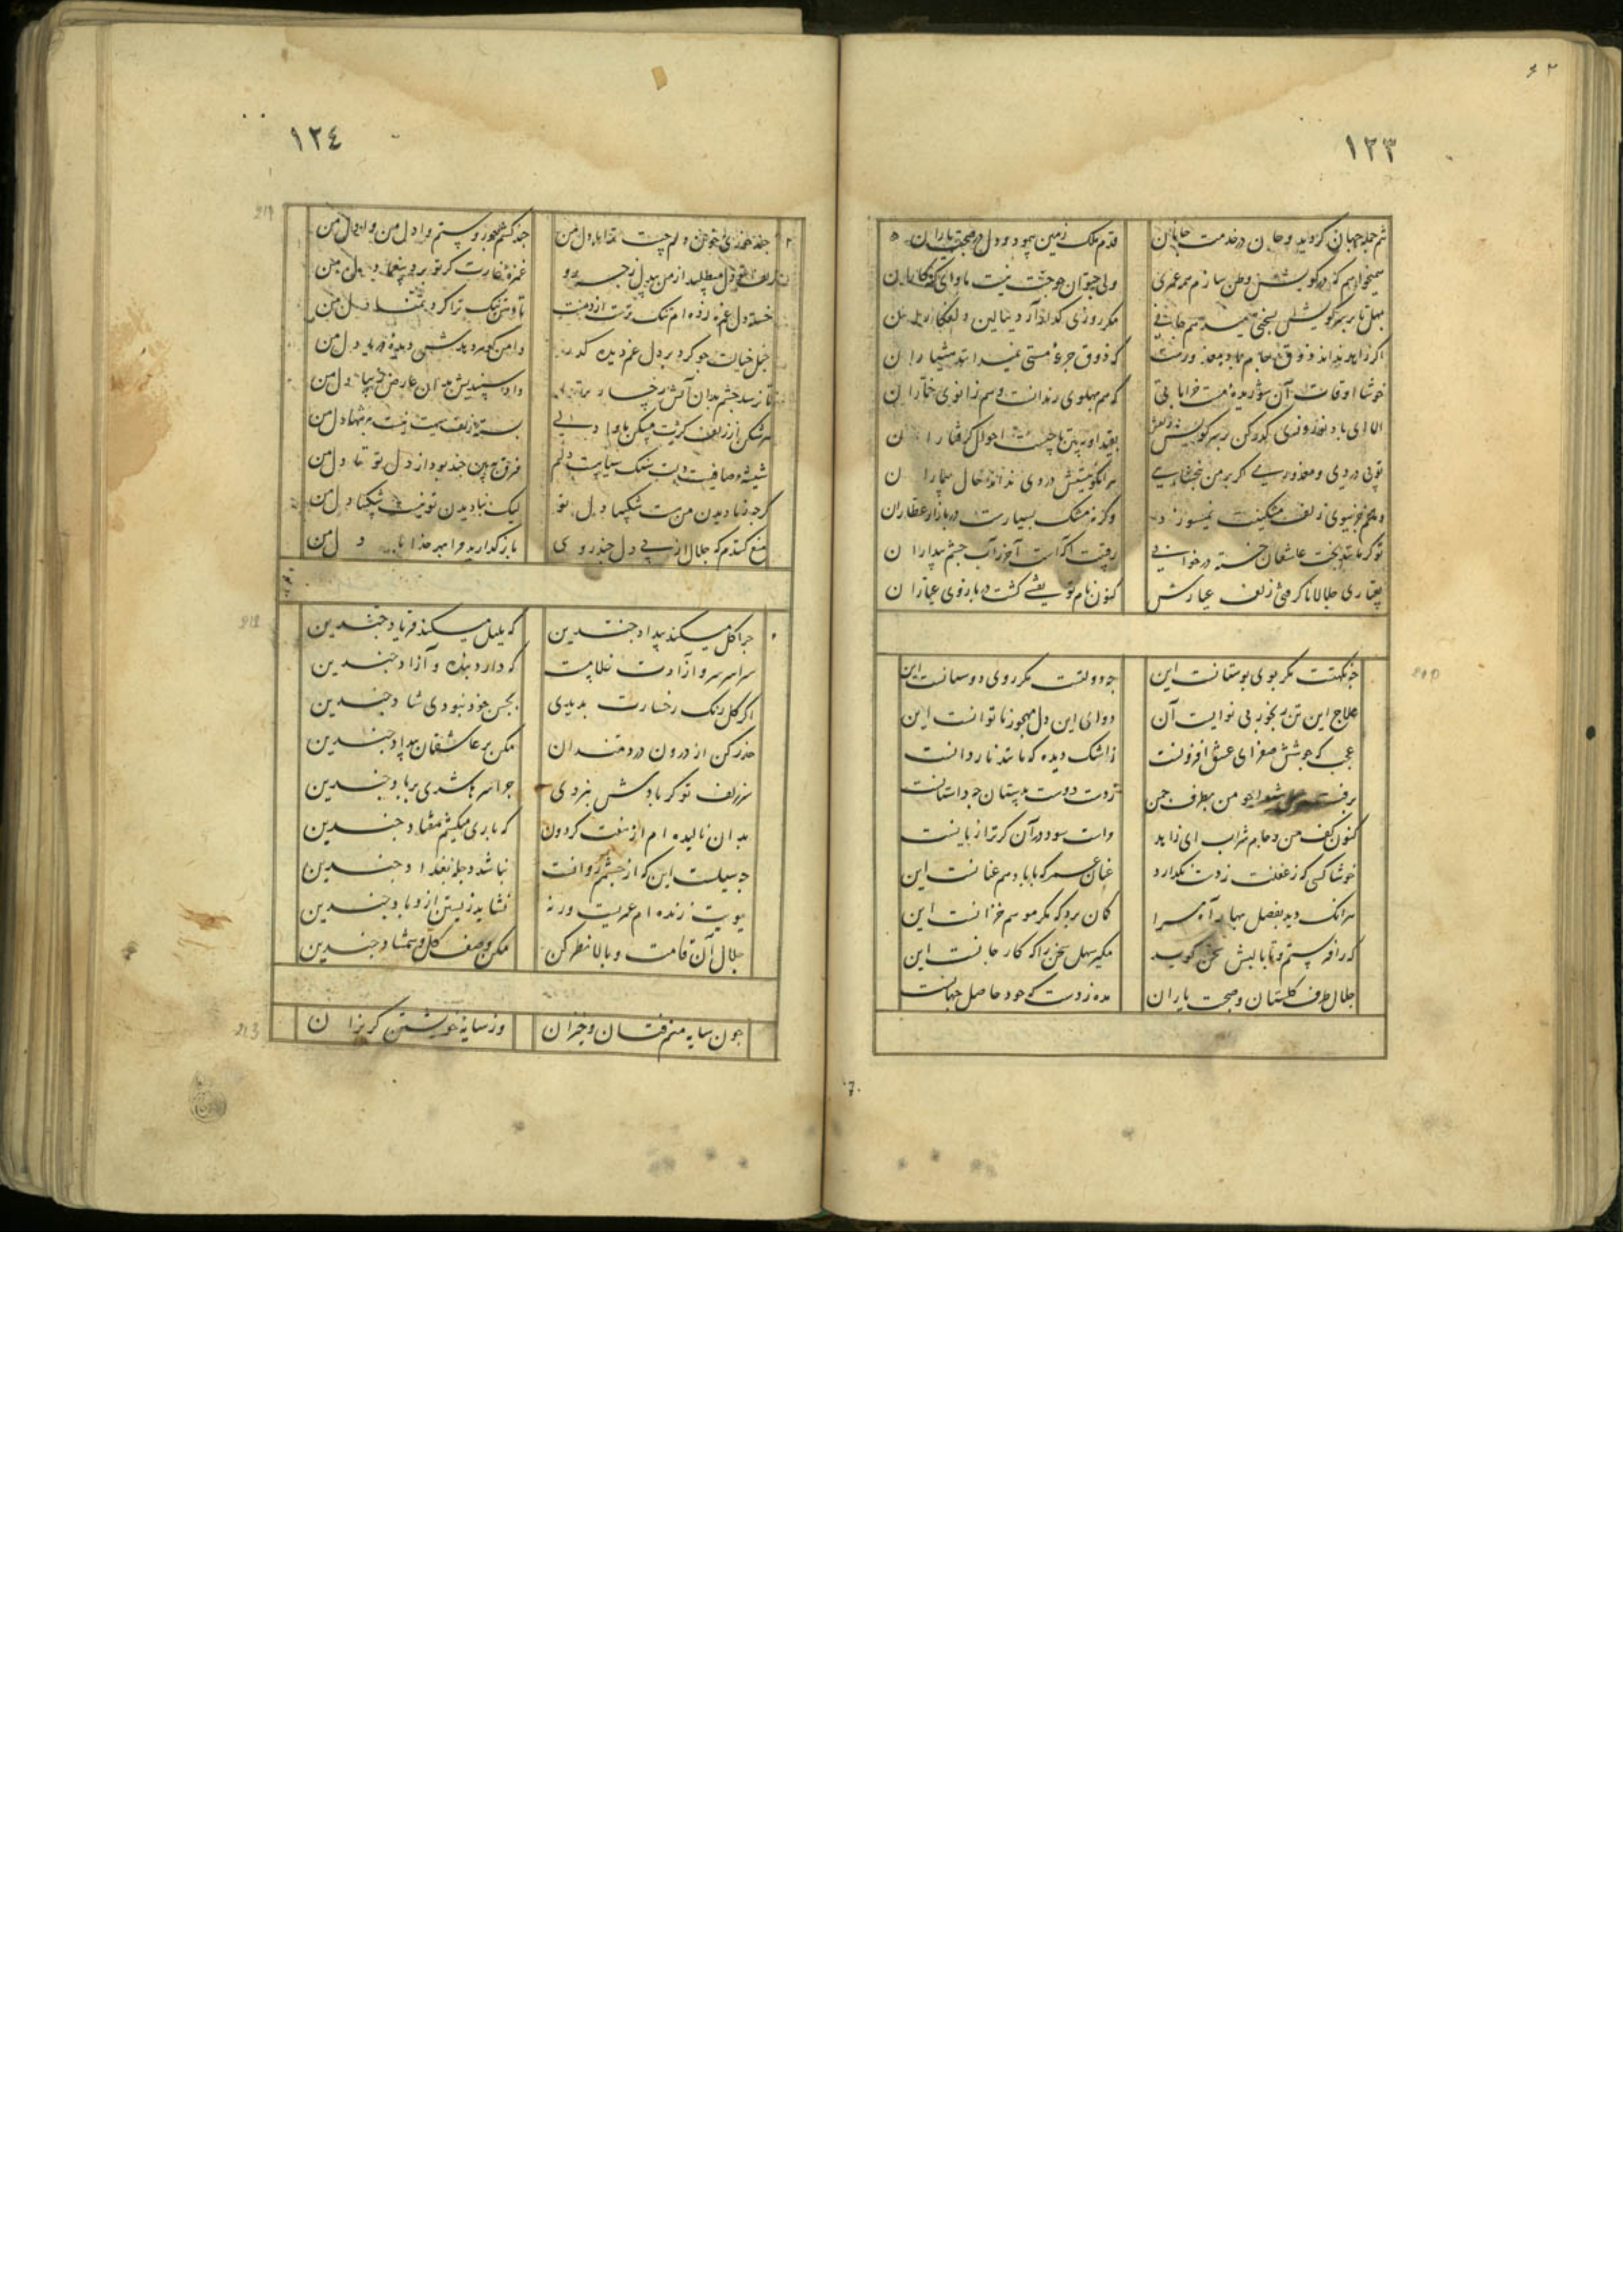 ١٢٣
تنم جمله جهان کردید و جان در خدمت جانان
قدم ملک زمین پیمود و دل در صحبت یاران
میخواهم که در کویش وطن سازم همه عمری
ولی چتوان جو جنت نیست ماوای کنه کاران
بهل تا بر سر کویش بسختی میدهم جانی
مکر روزی کذار آرد ببالین دلفکاران
اکر زاهد نداند ذوق ما جام معذورست
که ذوق جرعهٔ مستی نمیداند هشیاران
خوشا اوقات آن شوریدهٔ مست خراباتی
که هم پهلوی رندانست و هم زانوی خماران
الا ای باد نوروزی کذر کن بر سر کویش
ببین تا چیست احوال کرفتاران
تویی دردی و معذوری اکر بر من نبخشایی
هر انکو نیستش دردی نداند حال بیماران
دماغم جز ببوی زلف مشکینت نمیسوزد
وکرنه مشک بسیارست در بازار عطاران
تو کر باشد بخت عاشقان خسته در خوابی
رقیبت آکه است آخر ز آب چشم بیداران
بعیاری جلالا تا کرفتی زلف عیارش
کنون نام تو کشت در بازوی عیاران
جه نکهتست مکر بوی بوستانست این
جه دولتست مکر روی دوستانست این
علاج این تن رنجور بی نوایست آن
دوای این دل مهجور ناتوانست این
عجب که جوشش صفرای عشق افزونست
ز اشک دیده که مانند ناردانست
برفت من بطرف جمن
ز دست دوست بدستان جه داستانست
کنون کف من و جام شراب ای زاهد
واست سود در آن کر ترا زیانست
خوشا کسی که ز غفلت ز دست نکذارد
عنان عمر که با باد هم عنانست این
هر انک دید بفصل بهار آه مرا
کمان برد که مکر موسم خزانست این
که راند قدم و تا بالبش سخن کوید
مکیر سهل سخن را که کار جانست این
جلال طرف کلستان و صحبت یاران
مده ز دست که خود حاصل جهانست
١٢٤
جند خوری خون دلم چیست خدا را دل من
جند کشم جور و ستم وا دل من وا دل من
زلف تو دل میطلبد از من بیدل جه
غمزهٔ غارت کر تو برد بیغما دل من
خسته دل غمزده ام تنک ترست از دهنت
تا دهن تنک ترا کرد تمنا دل من
خیل خیالت جو کرد بر دل غمدیده کذر
دامن کوهر کشد دیدهٔ دریا دل من
تا نرسد جشم بدان آتش رخسار
داد سپندیش بدان عارض زیبا دل من
هر شکن از زلف کژت مسکن ماوا
بستهٔ زلف سیهت نیست نه تنها دل من
شیشهٔ صافیست دلت سنک سیاهیست دلم
فرق ببین جند بود از دل تو تا دل من
کر جه ز نادیدن من هست شکیبا دل تو
لیک ز نادیدن تو نیست شکیبا دل من
منع کنندم که جلال از پی دل جند روی
باز کذارید مرا بهر خدا با دل من
جرا کل میکند بیداد جندین
که بلبل میکند فریاد جندین
سراسر سرو آزادت غلامست
که دارد بنده و آزاد جندین
اکر کل رنک رخسارت بدیدی
بحسن خود نبودی شاد جندین
حذر کن از درون دردمندان
مکن بر عاشقان بیداد جندین
سر زلف تو کر بادش نبردی
جرا سر ما شدی بر باد جندین
بدان نالیده ام از هفت کردون
که باری میکشم هفتاد جندین
جه سیلست این که از جشمم روانست
نباشد دجله بغداد جندین
ببویت زنده ام عمریست ورنه
نشاید زیستن از باد جندین
جلال آن قامت و بالا نظر کن
مکن وصف کل و شمشاد جندین
جون سایه منم فتان و خیزان
وز سایهٔ خویشتن کریزان